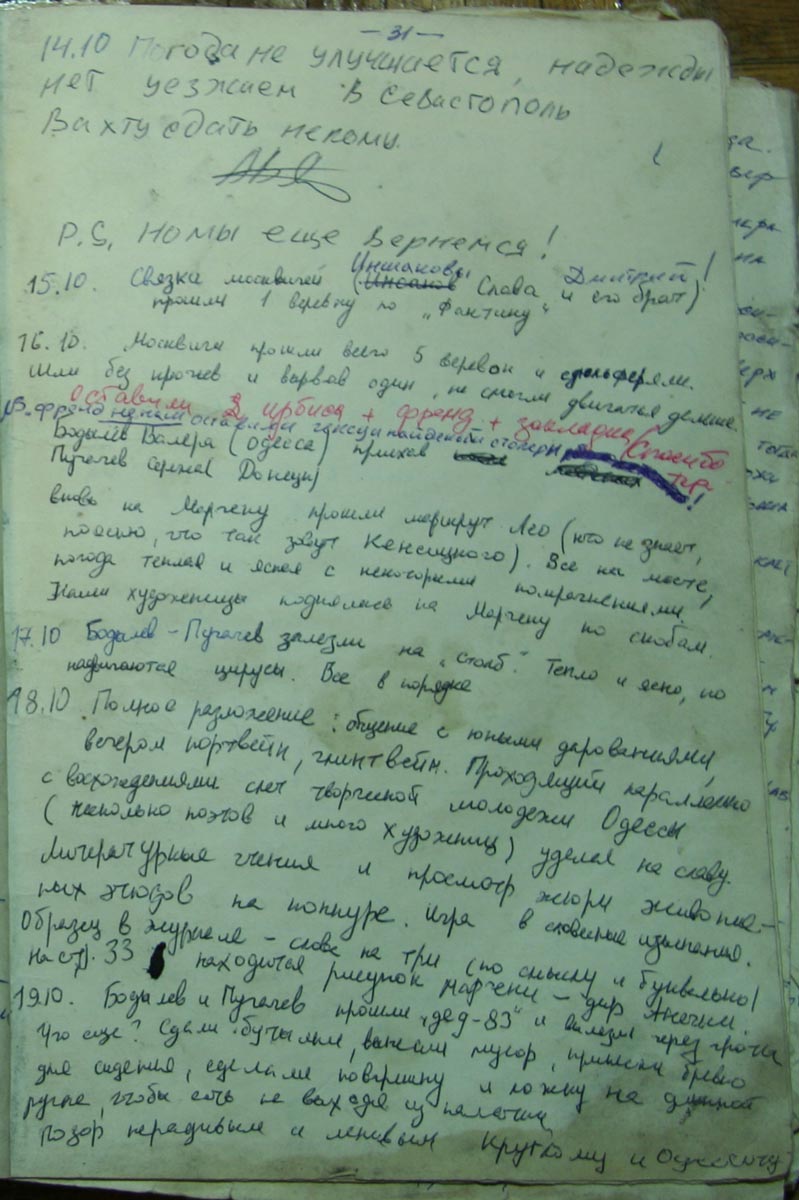 — 31 —
14.10 Погода не улучшается, надежды
нет уезжаем в Севастополь
Вахту сдать некому.
P.S. Но мы еще вернемся!
Иншаковы Дмитрий!
15.10. Связка москвичей (Инсаков Слава и его брат)
прошли 1 веревку по „Фантику"
16.10. Москвичи прошли всего 5 веревок и
Шли без крючьев и вырвав один, не смогли двигаться дальше.
Оставили 2 ирбиса + френд + закладка (Спасибо
френд не нам оставили
Бодылев Валера (Одесса) приехав
Пугачев Сережа (Донецк)
вновь на Марчеку прошли маршрут Лео (кто не знает,
поясню, что так зовут Кенсицкого). Все на месте,
погода теплая и ясная с некоторыми помрачнениями.
Наши художницы поднялись на Марчеку по скобам.
17.10 Бодылев – Пугачев залезли на „столб". Тепло и ясно, но
надвигаются цирусы. Все в порядке
18.10 Полное разложение: общение с юными дарованиями,
вечером портвейн, глинтвейн. Проходящий параллельно
с восхождениями слет творческой молодежи Одессы
(несколько поэтов и много художниц) удался на славу.
Литературные чтения и просмотр жюри живопис-
ных этюдов на конкурс. Игра в словесные изыскания.
Образец в журнале – слова на три (по смыслу и буквально)
на стр. 33 находится рисунок Марчеки – дар Анечки.
19.10. Бодылев и Пугачев прошли „дед-83" и вылезли через
Что еще? Сдали бутылки, вынесли мусор, принесли бревно
для сидения, сделали поварешку и ложку на длинной
ручке, чтобы есть не выходя из палатки
Позор нерадивым и ленивым Круглому и